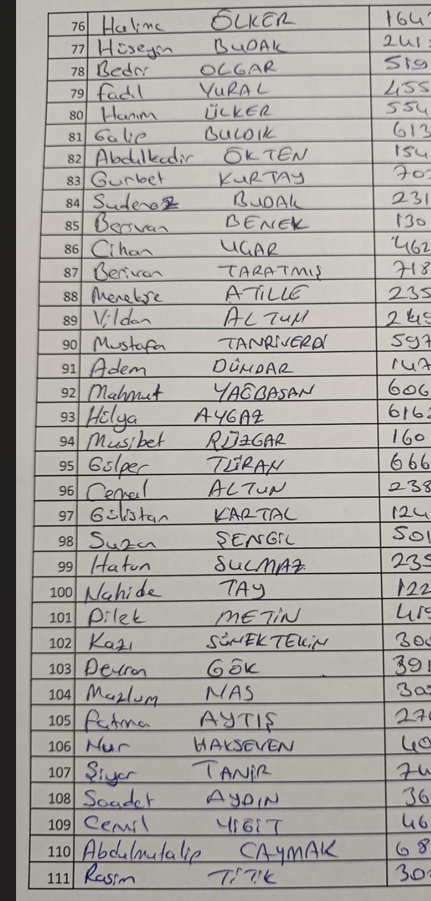 76 Halime ÖLKER 164
77 Hüseyin BUDAK 241
78 Bedri OLGAR 519
79 Fadıl VURAL 455
80 Hanım ÜLKER 554
81 Galip BULDIK 613
82 Abdulkadir ÖKTEN 154
83 Gurbet KURTAY 70
84 Sudenaz BUDAK 231
85 Berivan BENEK 130
86 Cihan UÇAR 462
87 Berivan TARATMIŞ 718
88 Menekşe ATİLLE 235
89 Vildan ALTUN 249
90 Mustafa TANRIVERDİ 597
91 Adem DÜNDAR 147
92 Mahmut YAĞBASAN 606
93 Hülya AYGAZ 616
94 Musibet RÜZGAR 160
95 Gülper TURAN 666
96 Cemal ALTUN 238
97 Gülistan KARTAL 124
98 Suzan ŞENGİL 501
99 Hatun SULMAZ 235
100 Nahide TAY 122
101 Dilek METİN 419
102 Kazı SÜMEKTEKİN 300
103 Devran GÖK 391
104 Mazlum NAS 30
105 Fatma AYTIŞ 270
106 Nur HAKSEVEN 40
107 Şiyar TANIR 74
108 Saadet AYDIN 36
109 Cemil YİGİT 46
110 Abdulmutalip CAYMAK 68
111 Rasim TİTİK 30